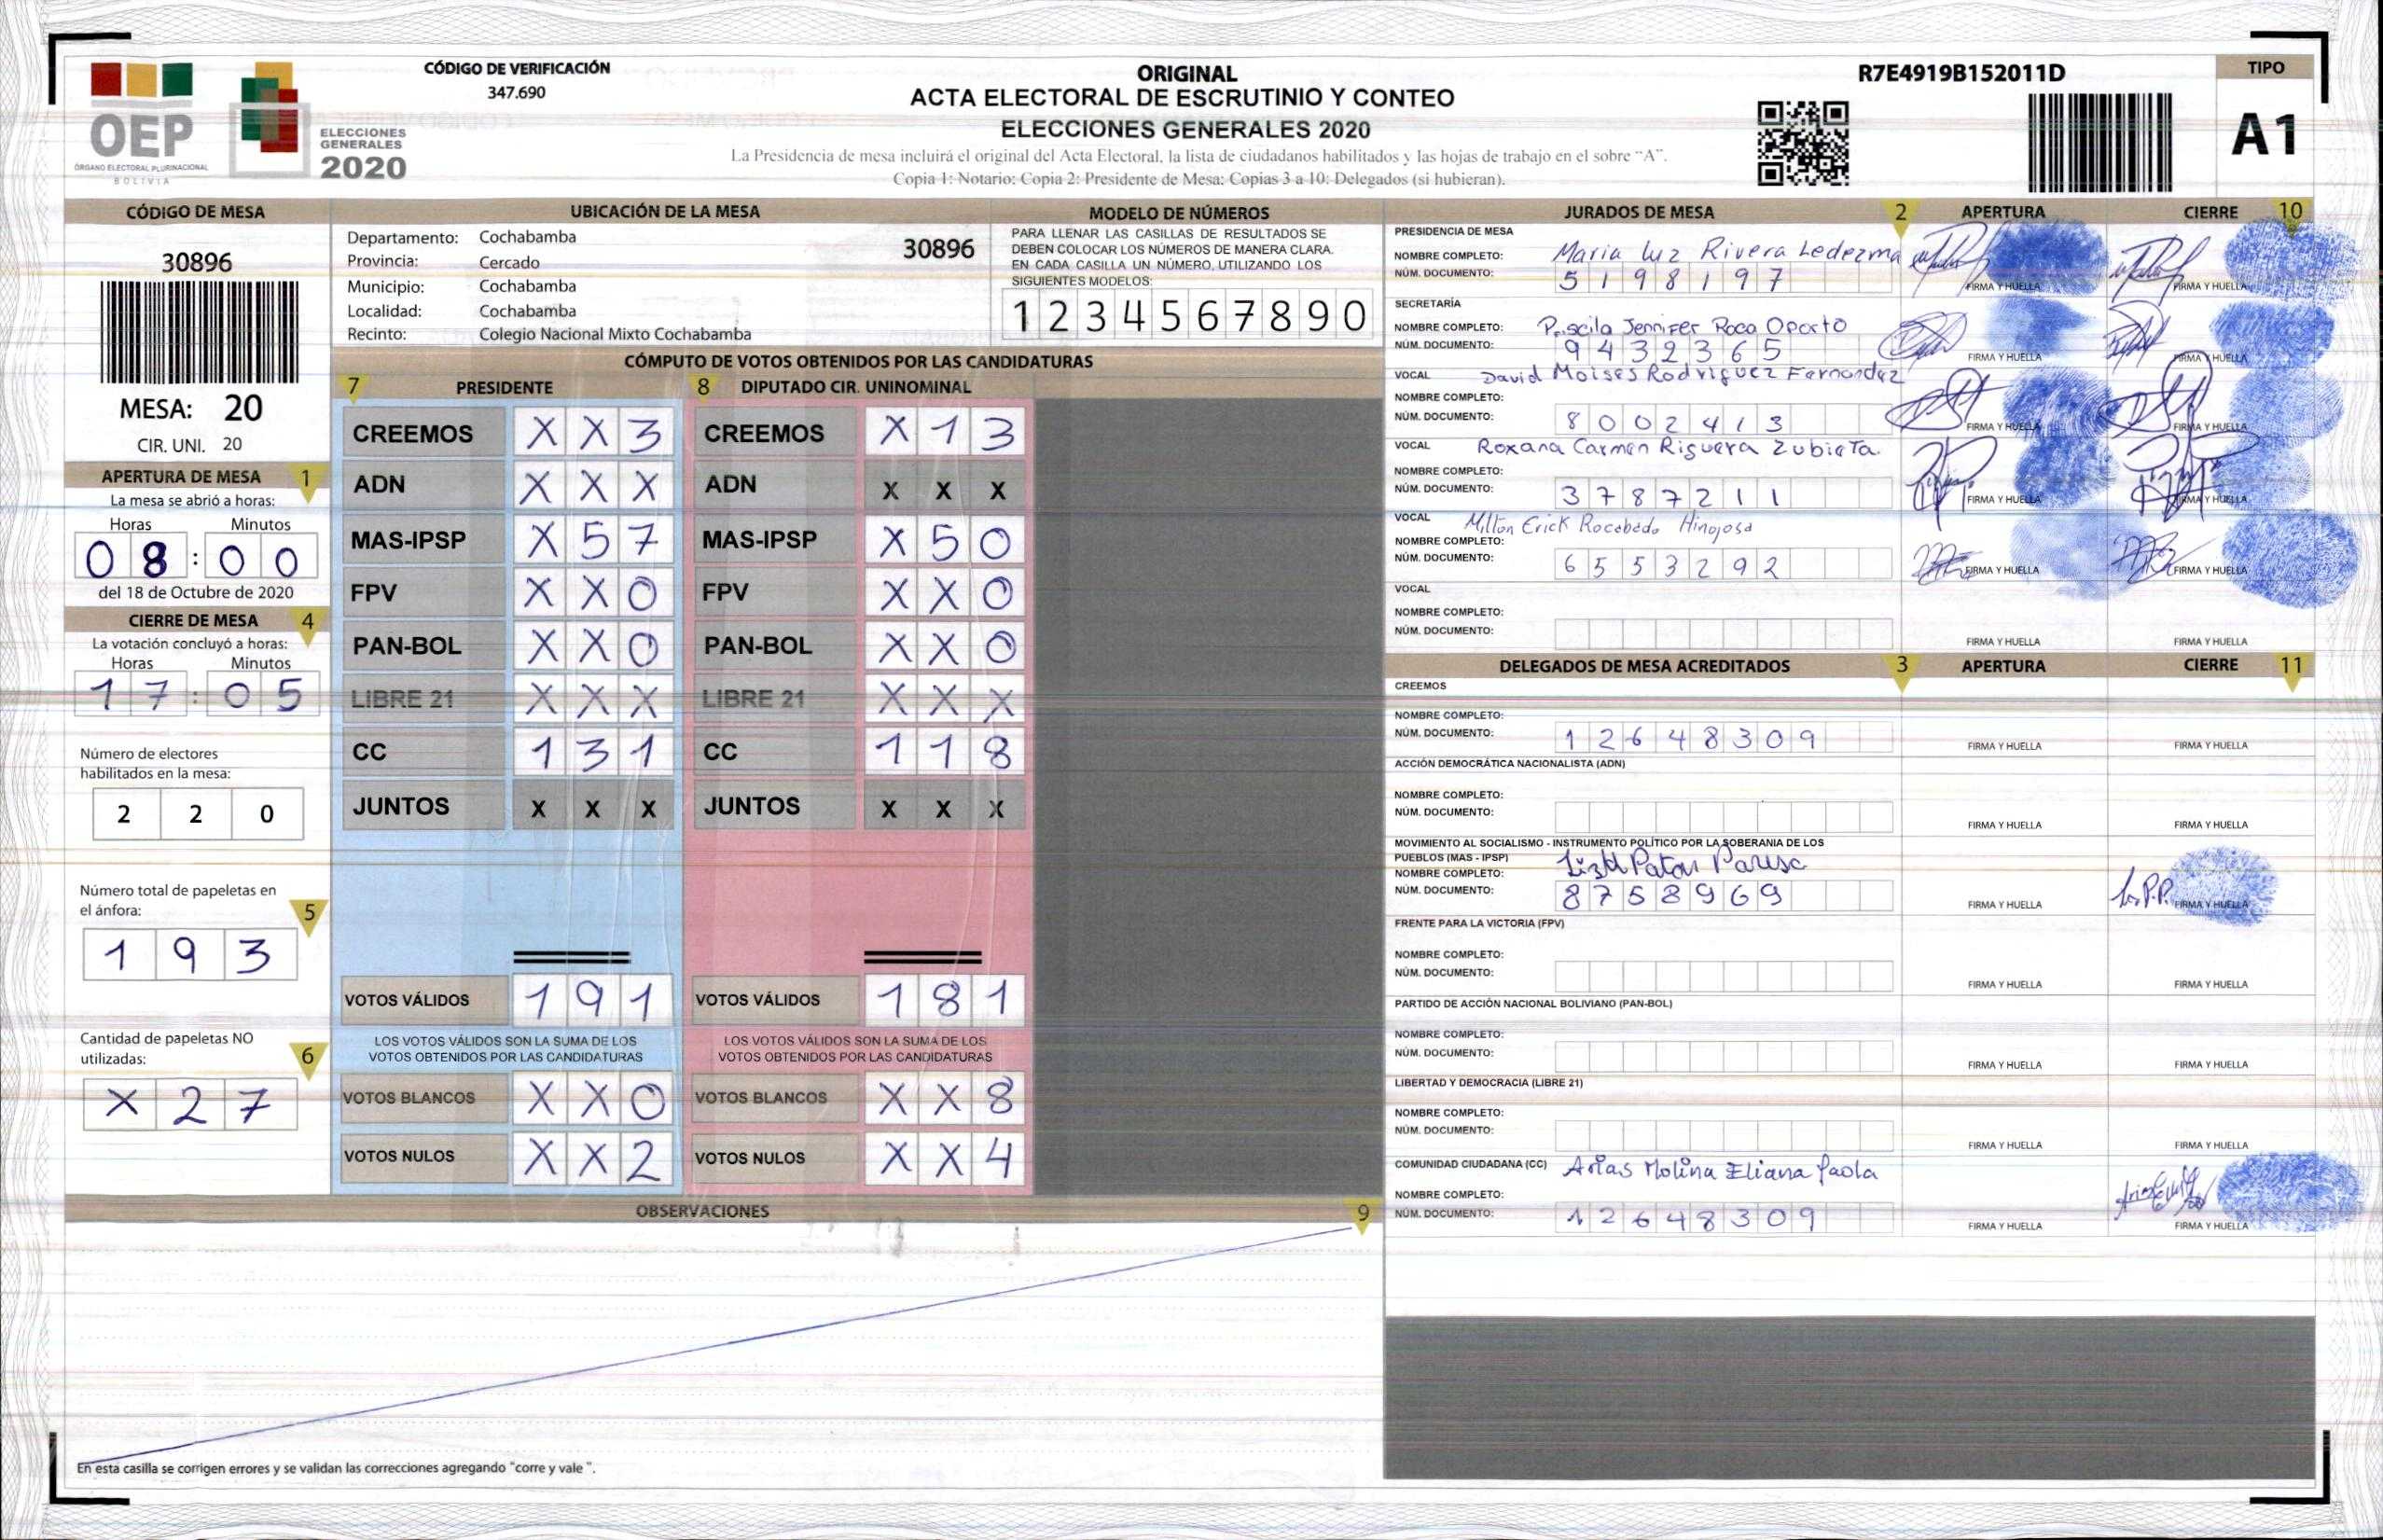 OEP
ÓRGANO ELECTORAL PLURINACIONAL
BOLIVIA
ELECCIONES
GENERALES
2020
CÓDIGO DE VERIFICACIÓN
347.690
ORIGINAL
ACTA ELECTORAL DE ESCRUTINIO Y CONTEO
ELECCIONES GENERALES 2020
La Presidencia de mesa incluirá el original del Acta Electoral, la lista de ciudadanos habilitados y las hojas de trabajo en el sobre "A".
Copia 1: Notario; Copia 2: Presidente de Mesa; Copias 3 a 10: Delegados (si hubieran).
R7E4919B152011D
TIPO
A1
CÓDIGO DE MESA
30896
MESA: 20
CIR. UNI. 20
APERTURA DE MESA 1
La mesa se abrió a horas:
Horas Minutos
08:00
del 18 de Octubre de 2020
CIERRE DE MESA 4
La votación concluyó a horas:
Horas Minutos
17:05
Número de electores
habilitados en la mesa:
2 2 0
Número total de papeletas en
el ánfora: 5
1 9 3
Cantidad de papeletas NO
utilizadas: 6
X 2 7
UBICACIÓN DE LA MESA
Departamento: Cochabamba
30896
Provincia: Cercado
Municipio: Cochabamba
Localidad: Cochabamba
Recinto: Colegio Nacional Mixto Cochabamba
MODELO DE NÚMEROS
PARA LLENAR LAS CASILLAS DE RESULTADOS SE
DEBEN COLOCAR LOS NÚMEROS DE MANERA CLARA.
EN CADA CASILLA UN NÚMERO, UTILIZANDO LOS
SIGUIENTES MODELOS:
1 2 3 4 5 6 7 8 9 0
CÓMPUTO DE VOTOS OBTENIDOS POR LAS CANDIDATURAS
7 PRESIDENTE 8 DIPUTADO CIR. UNINOMINAL
CREEMOS X X 3 CREEMOS X 1 3
ADN X X X ADN X X X
MAS-IPSP X 5 7 MAS-IPSP X 5 0
FPV X X 0 FPV X X 0
PAN-BOL X X 0 PAN-BOL X X 0
LIBRE 21 X X X LIBRE 21 X X X
CC 1 3 1 CC 1 1 8
JUNTOS X X X JUNTOS X X X
VOTOS VÁLIDOS 1 9 1 VOTOS VÁLIDOS 1 8 1
LOS VOTOS VÁLIDOS SON LA SUMA DE LOS LOS VOTOS VÁLIDOS SON LA SUMA DE LOS
VOTOS OBTENIDOS POR LAS CANDIDATURAS VOTOS OBTENIDOS POR LAS CANDIDATURAS
VOTOS BLANCOS X X 0 VOTOS BLANCOS X X 8
VOTOS NULOS X X 2 VOTOS NULOS X X 4
OBSERVACIONES 9
En esta casilla se corrigen errores y se validan las correcciones agregando "corre y vale ".
JURADOS DE MESA 2 APERTURA CIERRE 10
PRESIDENCIA DE MESA
NOMBRE COMPLETO: Maria Luz Rivera Ledezma
NÚM. DOCUMENTO: 5198197 FIRMA Y HUELLA FIRMA Y HUELLA
SECRETARÍA
NOMBRE COMPLETO: Priscila Jennifer Roca Oporto
NÚM. DOCUMENTO: 9432365 FIRMA Y HUELLA FIRMA Y HUELLA
VOCAL David Moises Rodriguez Fernandez
NOMBRE COMPLETO:
NÚM. DOCUMENTO: 8002413 FIRMA Y HUELLA FIRMA Y HUELLA
VOCAL Roxana Carmen Riguera Zubieta.
NOMBRE COMPLETO:
NÚM. DOCUMENTO: 3787211 FIRMA Y HUELLA FIRMA Y HUELLA
VOCAL Milton Erick Rocabado Hinojosa
NOMBRE COMPLETO:
NÚM. DOCUMENTO: 6553292 FIRMA Y HUELLA FIRMA Y HUELLA
VOCAL
NOMBRE COMPLETO:
NÚM. DOCUMENTO: FIRMA Y HUELLA FIRMA Y HUELLA
DELEGADOS DE MESA ACREDITADOS 3 APERTURA CIERRE 11
CREEMOS
NOMBRE COMPLETO:
NÚM. DOCUMENTO: 12648309 FIRMA Y HUELLA FIRMA Y HUELLA
ACCIÓN DEMOCRÁTICA NACIONALISTA (ADN)
NOMBRE COMPLETO:
NÚM. DOCUMENTO: FIRMA Y HUELLA FIRMA Y HUELLA
MOVIMIENTO AL SOCIALISMO - INSTRUMENTO POLÍTICO POR LA SOBERANIA DE LOS
PUEBLOS (MAS - IPSP)
NOMBRE COMPLETO:
NÚM. DOCUMENTO: 8758969 FIRMA Y HUELLA FIRMA Y HUELLA
FRENTE PARA LA VICTORIA (FPV)
NOMBRE COMPLETO:
NÚM. DOCUMENTO: FIRMA Y HUELLA FIRMA Y HUELLA
PARTIDO DE ACCIÓN NACIONAL BOLIVIANO (PAN-BOL)
NOMBRE COMPLETO:
NÚM. DOCUMENTO: FIRMA Y HUELLA FIRMA Y HUELLA
LIBERTAD Y DEMOCRACIA (LIBRE 21)
NOMBRE COMPLETO:
NÚM. DOCUMENTO: FIRMA Y HUELLA FIRMA Y HUELLA
COMUNIDAD CIUDADANA (CC) Arias Molina Eliana Paola
NOMBRE COMPLETO:
NÚM. DOCUMENTO: 12648309 FIRMA Y HUELLA FIRMA Y HUELLA